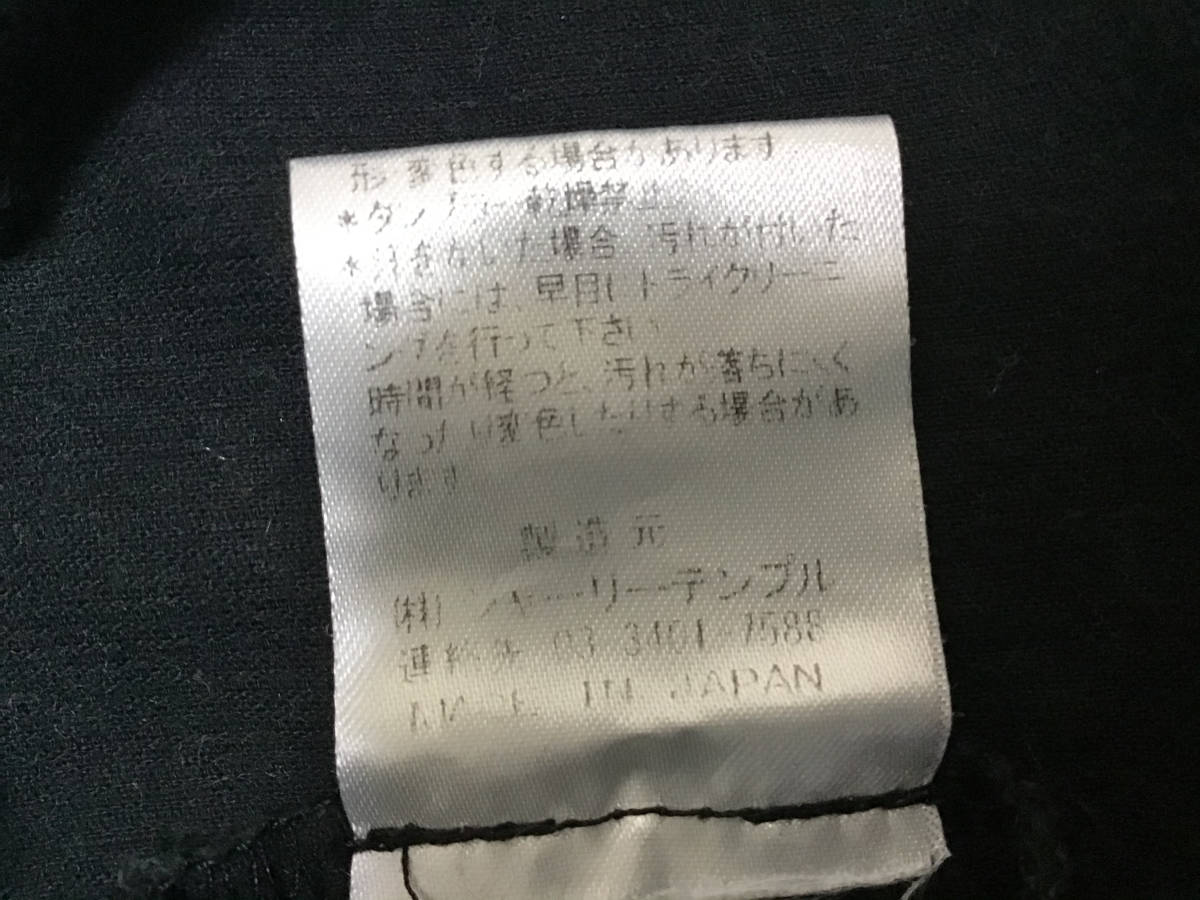 形変色する場合があります
*タンブラー乾燥禁止
*汗をかした場合 汚れが付いた
場合には、早目にドライクリーニ
ングを行って下さい
時間が経つと、汚れが落ちにくく
なったり変色したりする場合があ
ります
製造元
(株)シャーリーテンプル
連絡先 03-3401-7588
MADE IN JAPAN